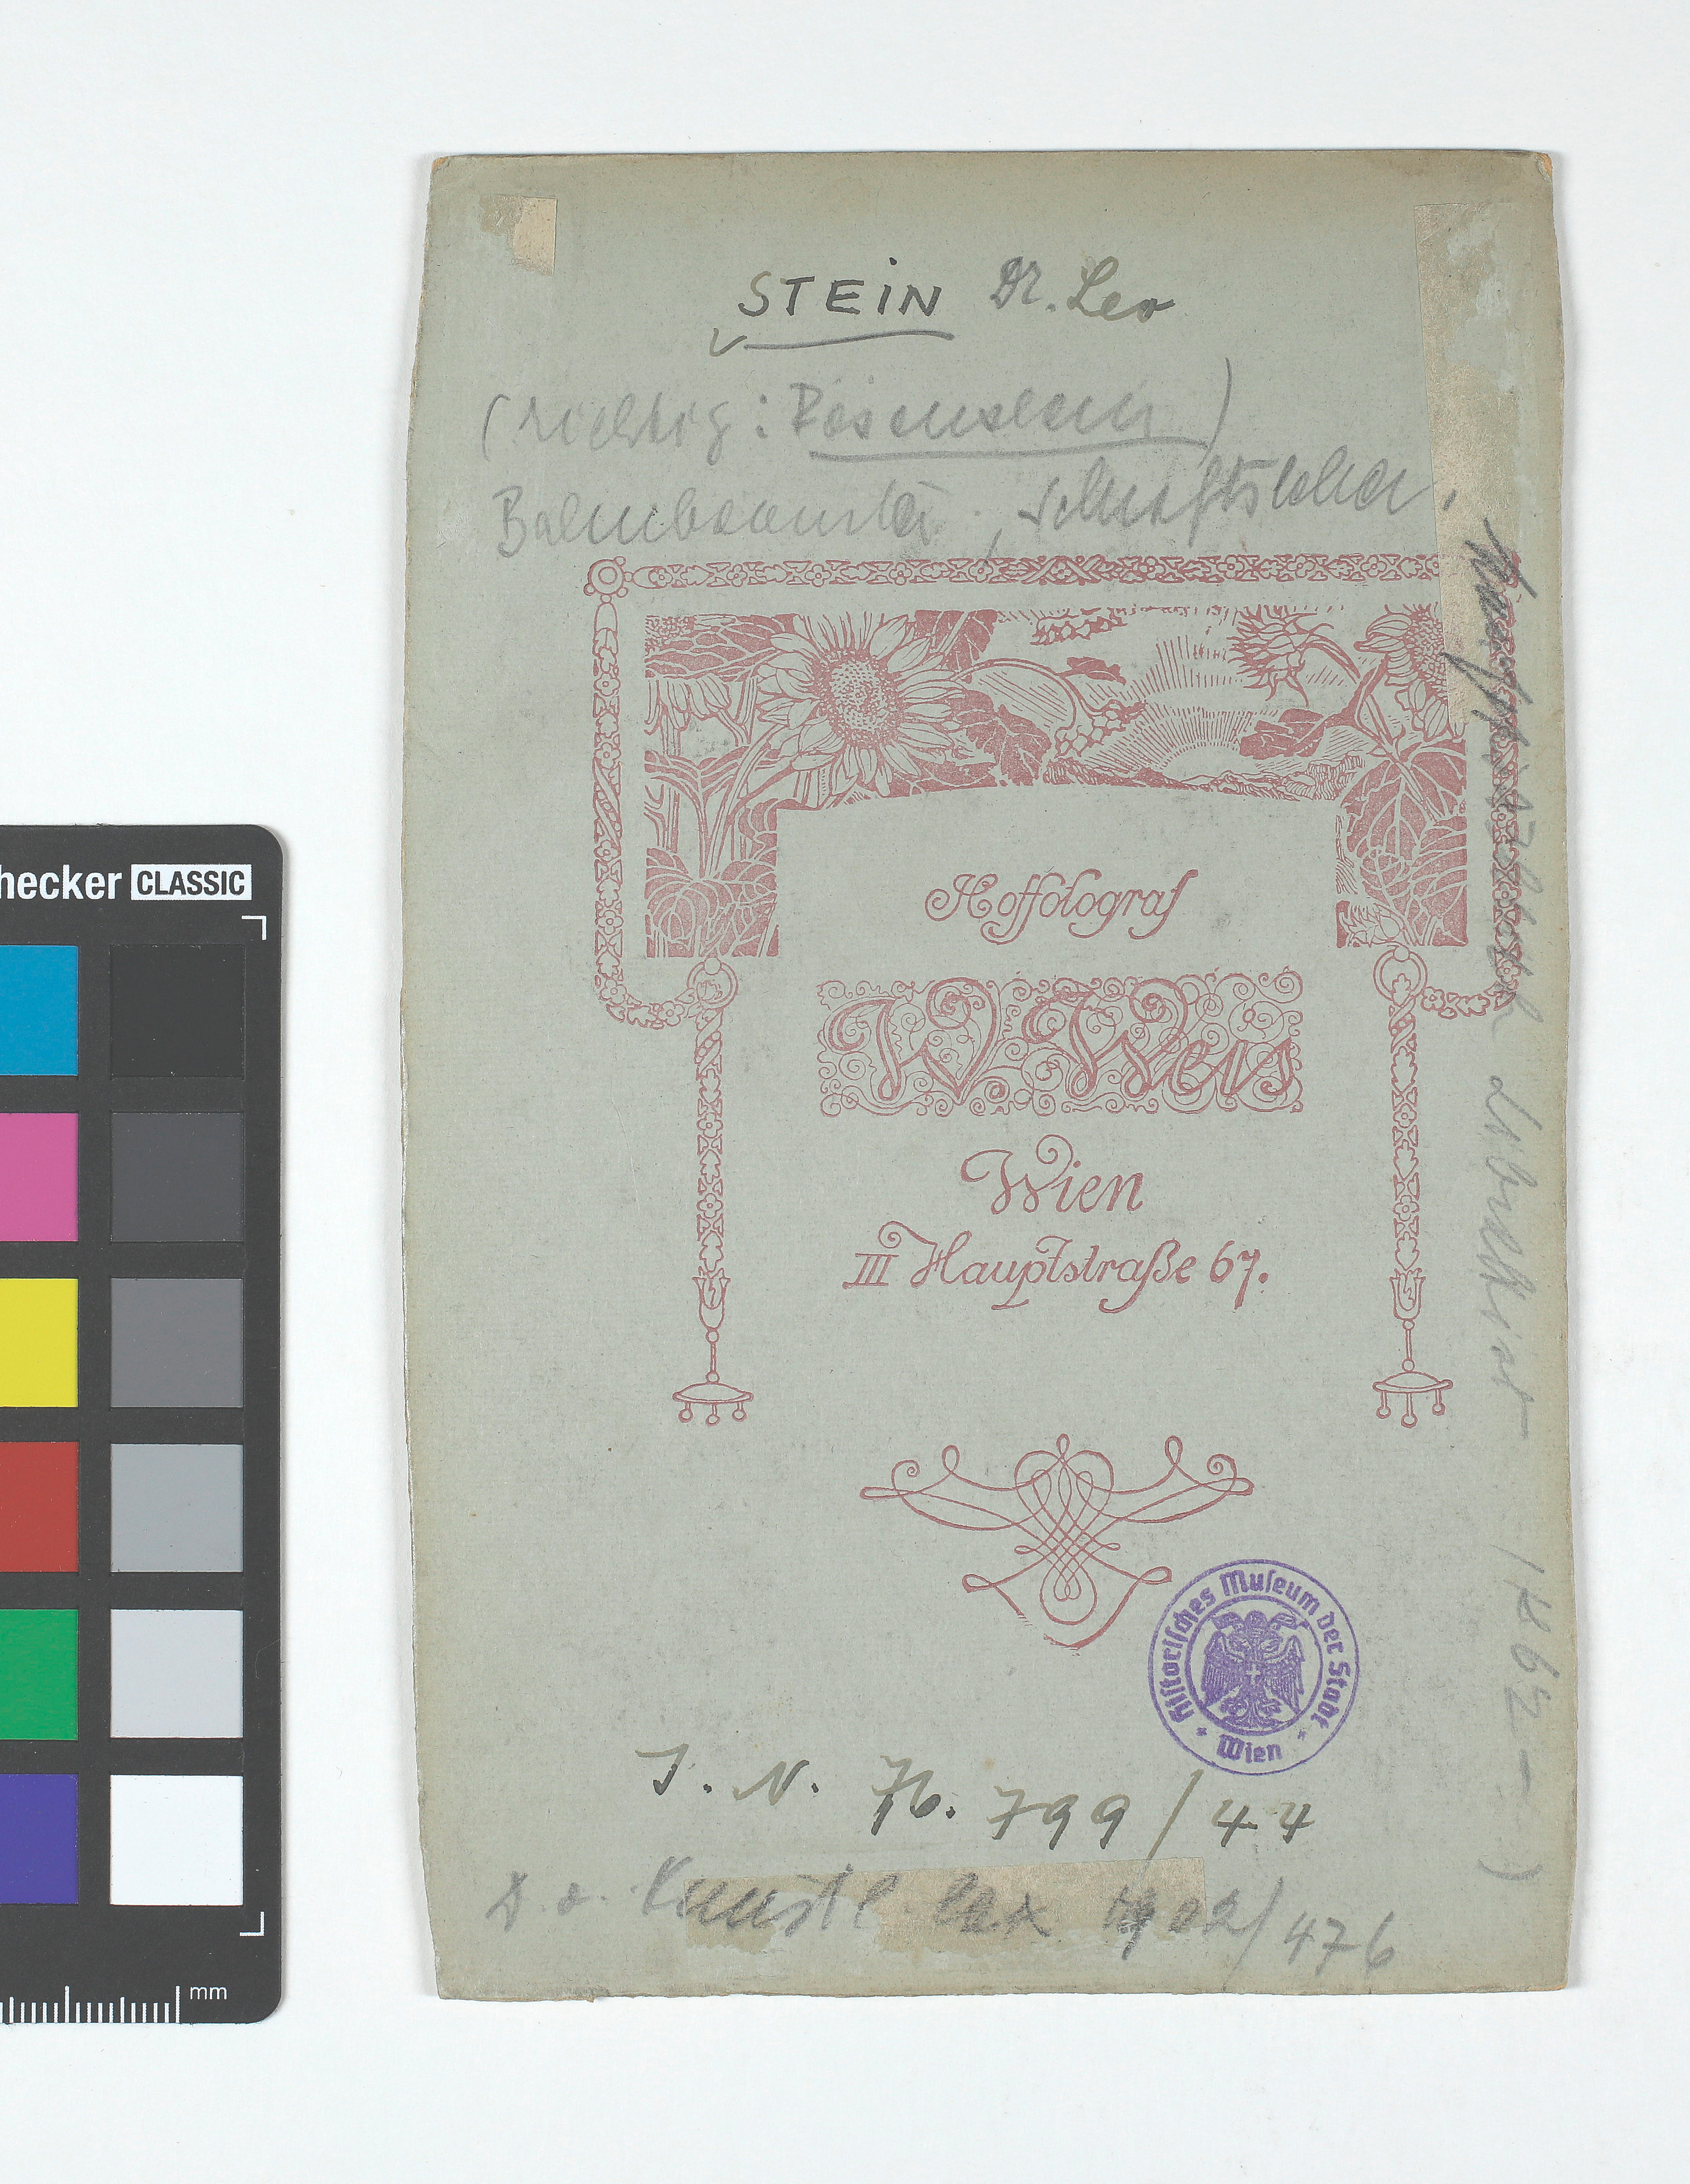 STEIN Dr. Leo
(richtig: Rosenstein)
Bahnbeamter, Schriftsteller,
Hoffotograf
W. Weis
Wien
III Hauptstraße 67.
Historisches Museum der Stadt
Wien
J. N. 76.799/44
D. ö. Künstl. Lex 1902/476
Librettist
(1862 - )
hecker CLASSIC
mm